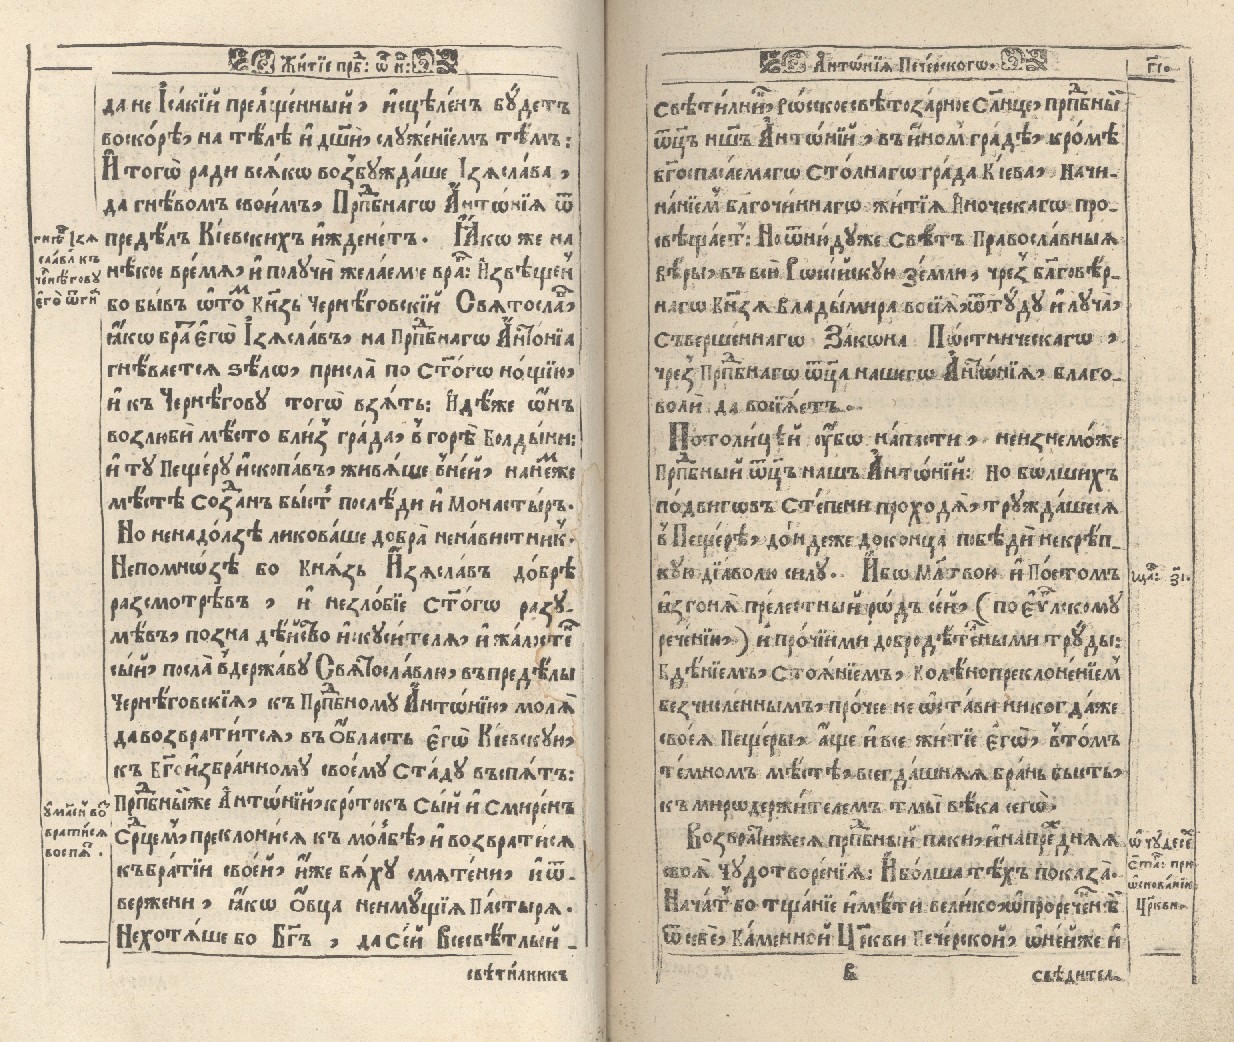 Жи́тїе прпⷣ: ѿ н҃:
да не І҆са́кїй преле́щенный, и҆сцѣле́нъ бꙋ́детъ
воскорѣ̀, на тѣ́лѣ и҆ дш҃ѝ, слꙋже́нїемъ тѣ́мъ:
И҆ тогѡ̀ ради всѧ́кѡ возⸯбꙋжда́ше І҆зѧсла́ва,
да гнѣ́вомъ свои́мъ, Прпⷣбнагѡ А҆нтѡ́нїѧ ѿ
предѣ́лъ Кі́евскихъ и҆жденетъ. Ꙗ҆́кѡ же на
нѣ́кое вре́мѧ, и҆ получѝ жела́емѣе вра́гъ: И҆звѣще́н
бо бы́въ ѡ҆ то́м Кн҃зь Черні́говскїй Свѧтосла́въ,
ꙗ҆́кѡ бра́тъ є҆гѡ̀ І҆зѧсла́въ, на Прпⷣбнагѡ А҆нто́нїа
гнѣ́ваетсѧ ѕѣ́лѡ, присла̀ по ст҃о́гѡ но́щїю,
и҆ къ Чернѣ́гову тогѡ̀ взѧ́ть: И҆дѣ́же ѡ҆́нъ
возлюбѝ мѣ́сто бли́з гра́да, в̾ горѣ̀ Болды́ни:
и҆ тꙋ Пеще́рꙋ и҆скопа́въ, живѧ́ше в̾не́й, на не́мже
мѣ́стѣ созⷣанъ бы́стъ послѣди и҆ Монасты́ръ.
Но ненадо́лзѣ ликова́ше добра̀ нена́вистник.
Непомно́зѣ бо Кнѧ́зь И҆зѧсла́въ до́брѣ
разсмотрѣ́въ, и҆ незло́бїе ст҃о́гѡ разꙋ-
мѣ́въ, позна дѣ́йство и҆скꙋси́телѧ, и҆ жа́лостен
сы́й, посла̀ в̾держа́вꙋ Свѧтосла́влю, въ предѣ́лы
Чернѣ́говскїѧ, къ Прпⷣбномꙋ А҆нтѡ́нїю, молѧ̀
да возврати́тсѧ, въ Ѻ҆́бласть є҆гѡ̀ Кі́евскꙋю,
къ Бг҃оизбра́нномꙋ своемꙋ ста́дꙋ въспѧ́ть:
Прпⷣбный же А҆нтѡ́нїй, кро́токъ сы́й и҆ смире́нъ
Ср҃цемъ, преклонисѧ къ мольбѣ̀, и҆ возврати́сѧ
къ бра́тїи свое́й, и҆́же бѧ́хꙋ смѧте́ни, и҆ ѿ-
вержени, ꙗ҆́кѡ Ѻ҆́вца неимꙋ́щїѧ Па́стырѧ.
Не хотѧ́ше бо Бг҃ъ, да се́й Всесвѣ́тлый
свѣти́лникъ
гнѣ́в І҆зѧ
сла́вл къ
чернѣ́говꙋ
є҆гѡ̀
ꙋ҆мле́н во
врати́сѧ
воспѧ́т.
А҆нтѡ́нїѧ Пече́рскогѡ.
г҃і.
свѣти́лник, Рѡ́сское свѣтоза́рное Сл҃нце, прпⷣбный
ѿц҃ъ нш҃ъ А҆нтѡ́нїй, въ и҆́ном гра́дѣ, кро́мѣ
бг҃оспаса́емагѡ сто́лнагѡ гра́да Кі́ева, начи-
на́нїемъ бл҃гочи́ннагѡ житїѧ̀ И҆́ноческагѡ про-
свѣща́етъ: Но ѿню́дꙋже свѣ́тъ Правосла́вныѧ
Вѣ́ры, въ все́й Рѡссі́йской земли́, чрез бл҃говѣ́р-
нагѡ Кн҃зѧ Влады́мира возсїѧ̀, ѿтꙋ́дꙋ и҆ лꙋча̀
съверше́ннагѡ За́кона По́стническагѡ,
чрез Прпⷣбнагѡ ѿц҃а нашегѡ А҆нтѡ́нїѧ, благо-
волѝ да возсїѧ́етъ.
По толи́цѣй ᲂу҆́бѡ напасти, неизнемо́же
Прпⷣбный ѿц҃ъ нашъ А҆нтѡ́нїй: но бѡ́лшихъ
по́двигѡвъ сте́пени проходѧ̀, трꙋжда́шесѧ
в̾ Пеще́рѣ, до́ндеже до конца̀ побѣди некрѣп-
кꙋю дїа́волю си́лꙋ. И҆́бо Мл҃твою и҆ По́стомъ
и҆згонѧ̀ преле́стный рѡ́дъ се́й, (по є҆ѵⷢ҇лскомꙋ
рече́нїю,) и҆ про́чїими добродѣ́телными трꙋды̀:
бдѣ́нїемъ, стоѧ́нїемъ, колѣнопреклоне́нїем
безчи́сленнымъ, про́чее не ѡ҆ста́ви никогда́же
своеѧ̀ Пеще́ры, а҆́ще и҆ все житїѐ є҆гѡ̀, в̾ то́мъ
те́мномъ мѣ́стѣ, всегда́шнѧѧ бра́нь бы́сть,
къ мирѡдержи́телемъ тмы̀ вѣ́ка сегѡ̀.
Возвра́тижесѧ прпⷣбный паки, и҆ напре́днѧѧ
своѧ̀ чꙋдотворе́нїѧ: И҆ бо́лша тѣ́хъ показа̀.
Нача́т бо тща́нїе и҆мѣ́ти вели́ко, ѡ҆ прорече́ннѣ
ѿ себѐ, ка́менной Цр҃кви Пече́рской, ѡ҆ не́йже и҆
в
свѣди́тел-
ща: з҃і.
ѡ҆ чꙋдесѣ́
ста́г: при
ѡ҆снова́нїи
Цр҃кви.